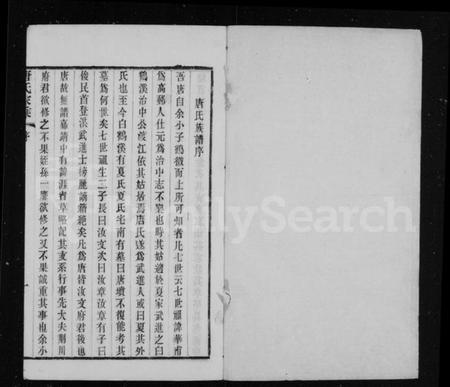 唐氏族譜序
吾唐自余小子鶴徵而上所可知者凡七世云七世祖諱華甫
為高郵人仕元為治中志不樂也時其姑適於夏家武進之白
鶴溪治中公渡江依其姑居焉唐氏遂為武進人或曰夏其外
氏也至今白鶴溪有夏氏夏氏宅南有墓曰唐墳不復能考其
墓為何世矣七世祖生二子長曰汝文次曰汝章汝章有子曰
後民首登洪武進士榜謝籍絕矣凡為唐皆汝文府君後也
唐故無譜嘉靖中有諱涯者草略記其支系行事先大夫荊川
府君欲修之不果姪孫一麐欲修之又不果誠重其事也余小
唐氏家乘 序
FamilySearch